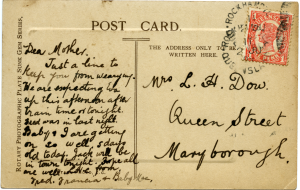 POST CARD
THE ADDRESS ONLY TO BE WRITTEN
ROTARY PHOTOGRAPHIC PLATE SUNK GEM SERIES.
Dear Mother.
Just a line to
keep you from worrying.
We are expecting
up this afternoon after
train time or tonight
was in last night.
Baby & I are getting
on so well, 5 days
old today. Jack will be
in town tonight. Hope all
are well love from
Fred. Francis & Baby
Mrs L. H. Dow.
Queen Street
Maryborough.
QUEENSLAND